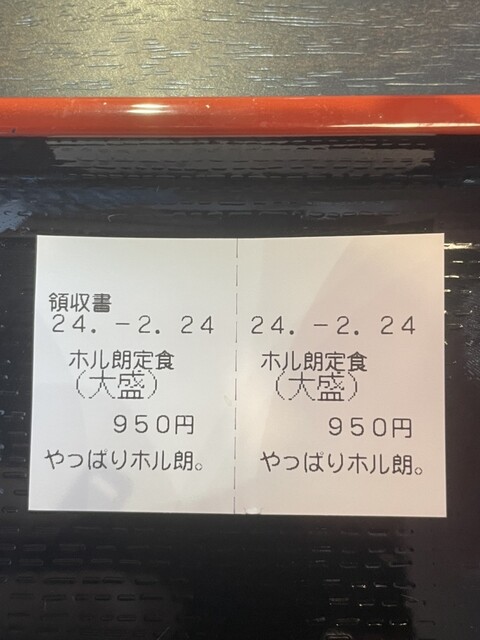 領収書
24.-2.24
ホル朗定食
(大盛)
950円
やっぱりホル朗。
24.-2.24
ホル朗定食
(大盛)
950円
やっぱりホル朗。